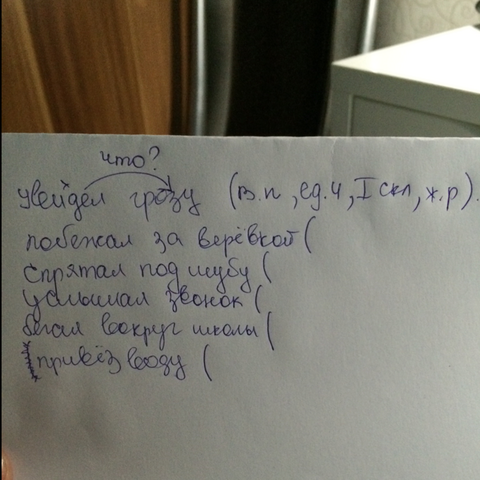 что?
увейдел грозу (в.п, ед.ч, I скл, ж.р).
побежал за верёвкой (
спрятал под шубу (
услышал звонок (
бегал вокруг школы (
привёз воду (